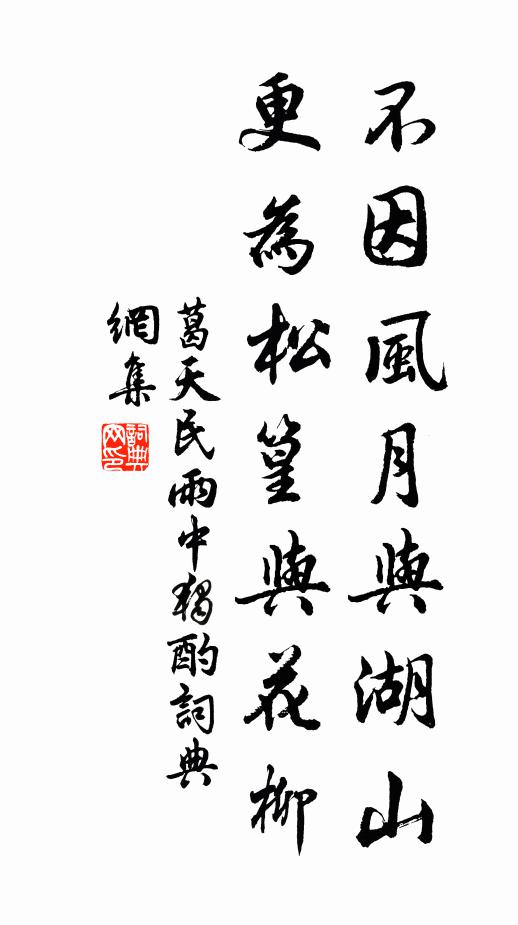 不因風月與湖山
更為松篁與花柳
葛天民雨中獨酌詞典
網集
詞典
网印